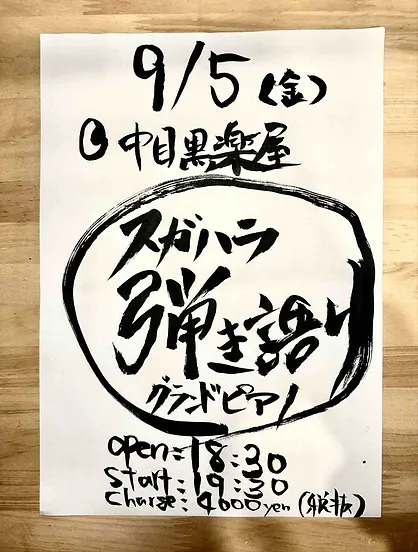 9/5(金)
@中目黒楽屋
スガハラ
弾き語り
グランドピアノ
open:18:30
Start:19:30
Charge:4000yen(税抜)